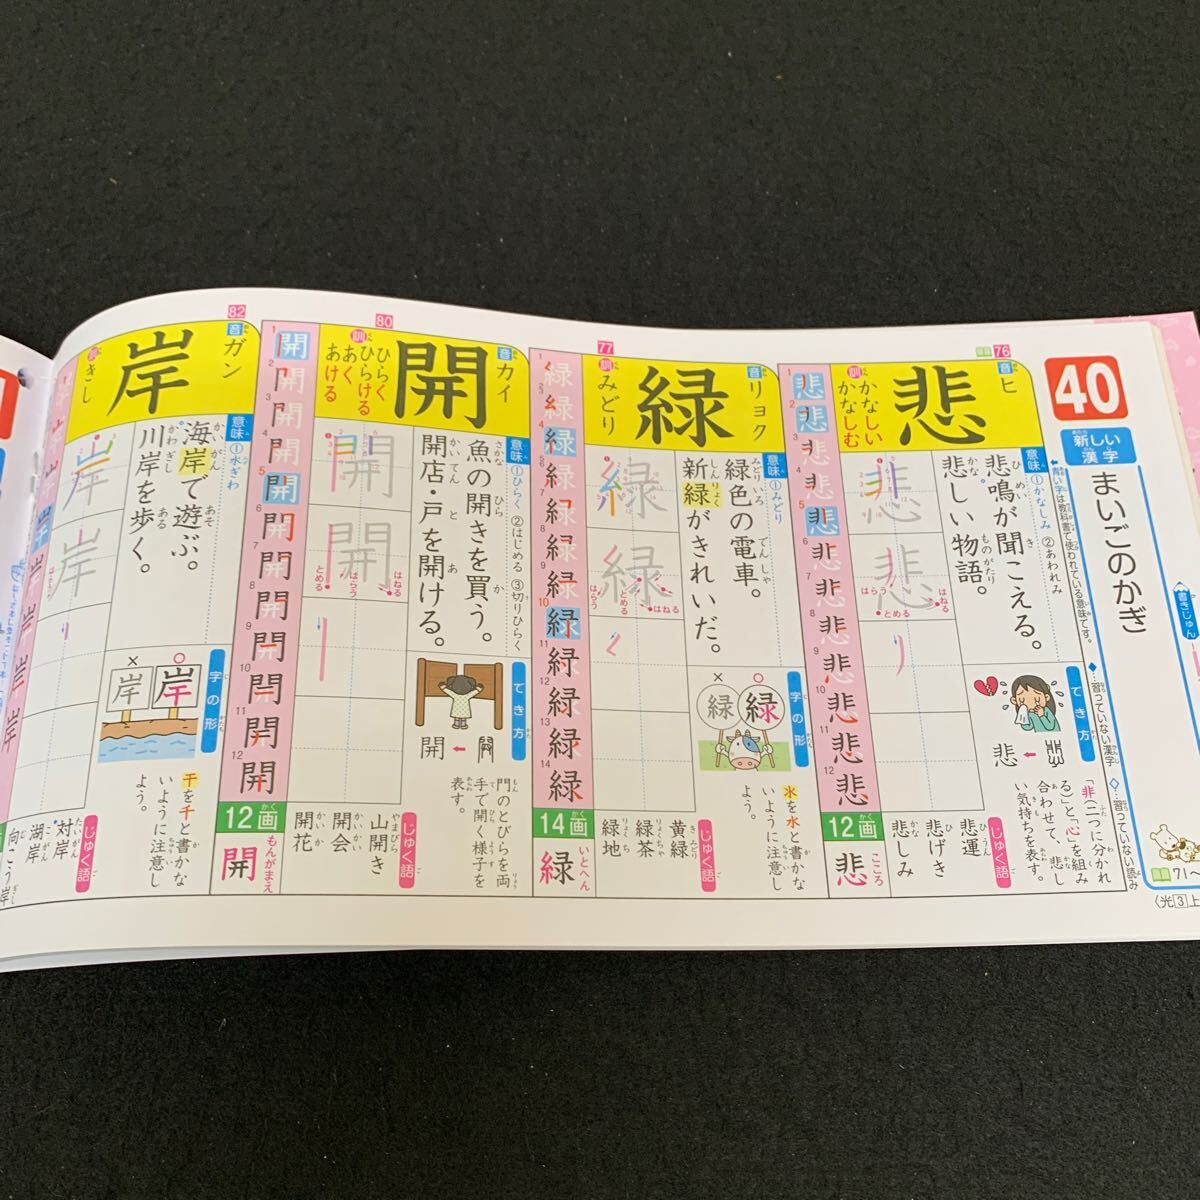 40
新しい漢字
まいごのかぎ
書きじゅん
◆…習っていない漢字
◇…習っていない読み
71～
〈光3上
76
悲
音 ヒ
訓 かなしい
かなしむ
意味 ①かなしみ ②あわれみ
悲鳴が聞こえる。
悲しい物語。
はらう
とめる
はねる
でき方
「非(二つに分かれ
る)」と、「心」を組み
合わせて、悲し
い気持ちを表す。
じゅく語
悲運
悲げき
悲しみ
12画
悲
こころ
77
緑
音 リョク
訓 みどり
意味 ①みどり
緑色の電車。
新緑がきれいだ。
はらう
とめる
はねる
字の形
○ 緑
× 緑
氺を水と書かな
いように注意し
よう。
じゅく語
黄緑
緑茶
緑地
14画
緑
いとへん
80
開
音 カイ
訓 ひらく
ひらける
あく
あける
意味 ①ひらく ②はじめる ③切りひらく
魚の開きを買う。
開店・戸を開ける。
とめる
はらう
はねる
でき方
門のとびらを両
手で開く様子を
表す。
じゅく語
山開き
開会
開花
12画
開
もんがまえ
82
岸
音 ガン
きし
意味 ①水ぎわ
海岸で遊ぶ。
川岸を歩く。
字の形
○ 岸
× 岸
干を千と書かな
いように注意し
よう。
じゅく語
対岸
湖岸
向こう岸